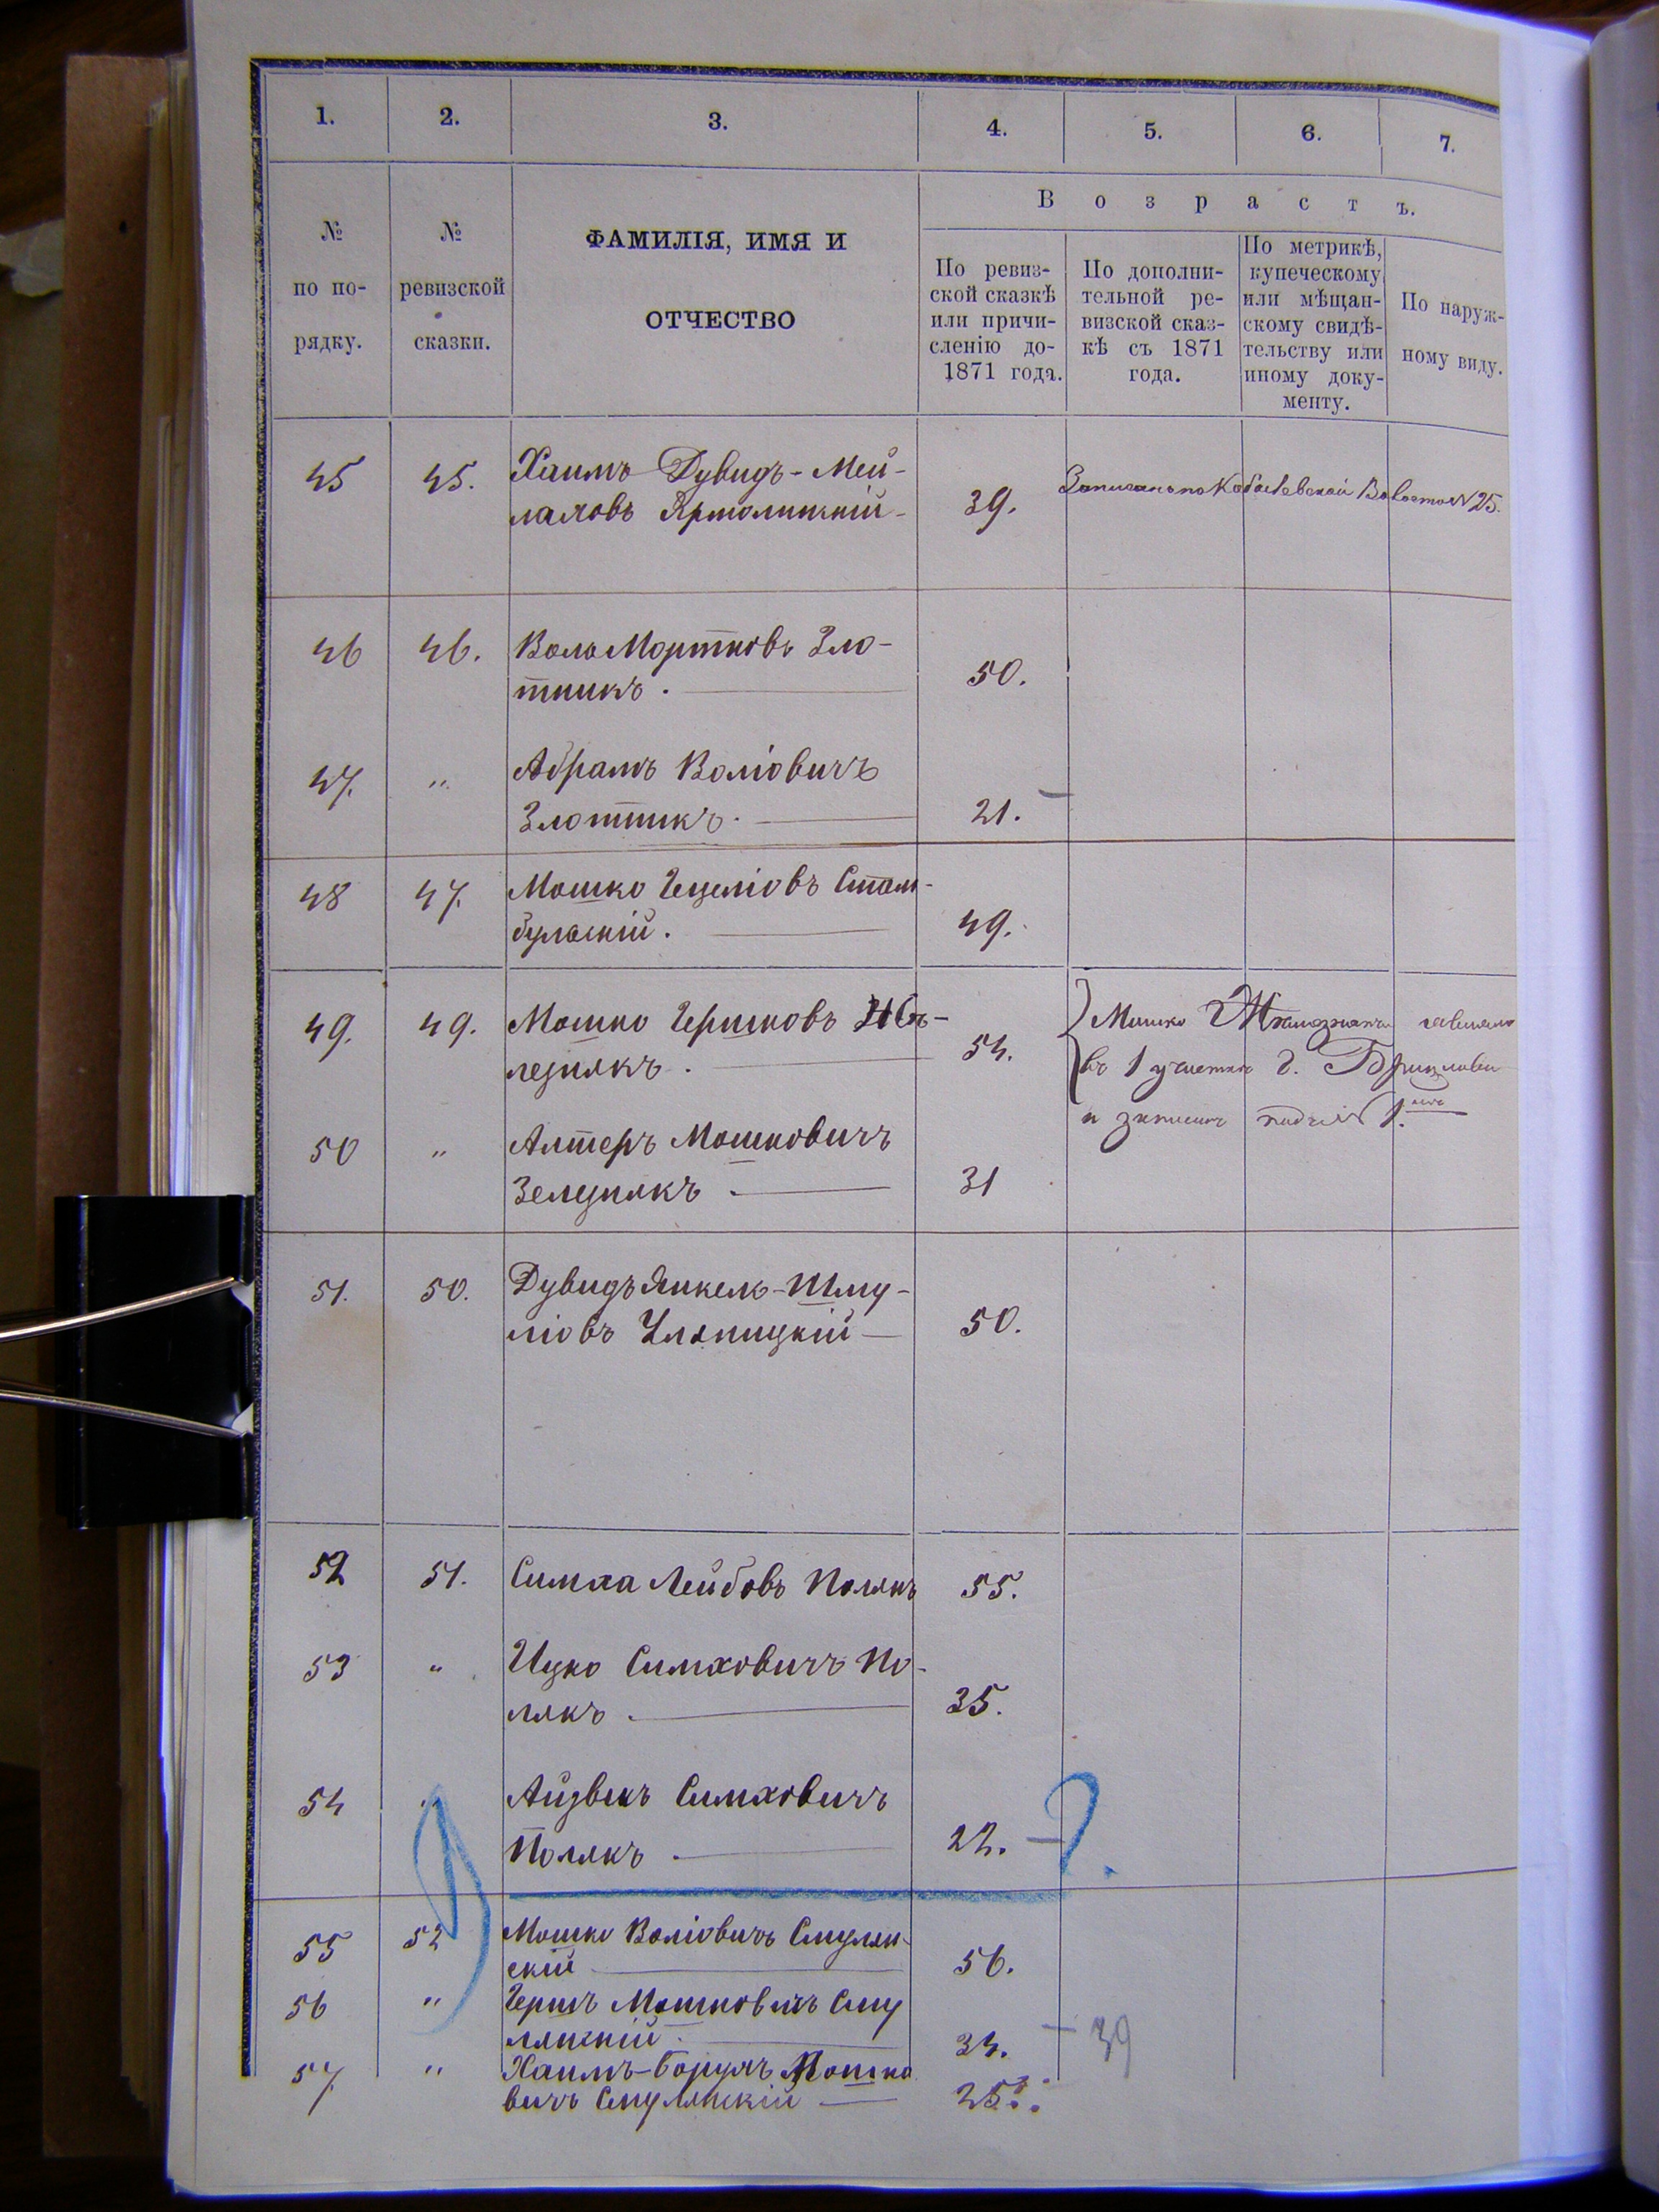 1. 2. 3. 4. 5. 6. 7.
№ по по-рядку.
№ ревизской сказки.
ФАМИЛІЯ, ИМЯ И
ОТЧЕСТВО
Возрастъ.
По ревиз-
ской сказкѣ
или причи-
сленію до-
1871 года.
По дополни-
тельной ре-
визской сказ-
кѣ съ 1871
года.
По метрикѣ,
купеческому
или мѣщан-
скому свидѣ-
тельству или
иному доку-
менту.
По наруж-
ному виду.
45 45. Хаимъ Дувидъ-Мей-
лаховъ Ярмолинскій 39. Записанъ по Волости N 25.
46 46. Воль Мортковъ Зло-
тникъ. 50.
47. " Абрамъ Воліовичъ
Злотникъ. 21. —
48 47. Мошко Гецеліовъ Стам-
бульскій. 49.
49. 49. Мошко Гершковъ
54. Мошко
въ 1 участкѣ г.
и записанъ подъ N 1.
50 " Алтеръ Мошковичъ
31
51. 50. Дувидъ Янкель-Шму-
ліовъ Уланицкій 50.
52 51. Симха Лейбовъ Полякъ 55.
53 " Ицко Симховичъ По-
лякъ. 35.
54 " Айзикъ Симховичъ
Полякъ. 22. — ?
55 52 Мошко Воліовичъ Смулян-
скій 56.
56 " Гершъ Мошковичъ Сму
лянскій. 34. — 39
57. " Хаимъ-Борухъ Мошко
вичъ Смулянскій 25.